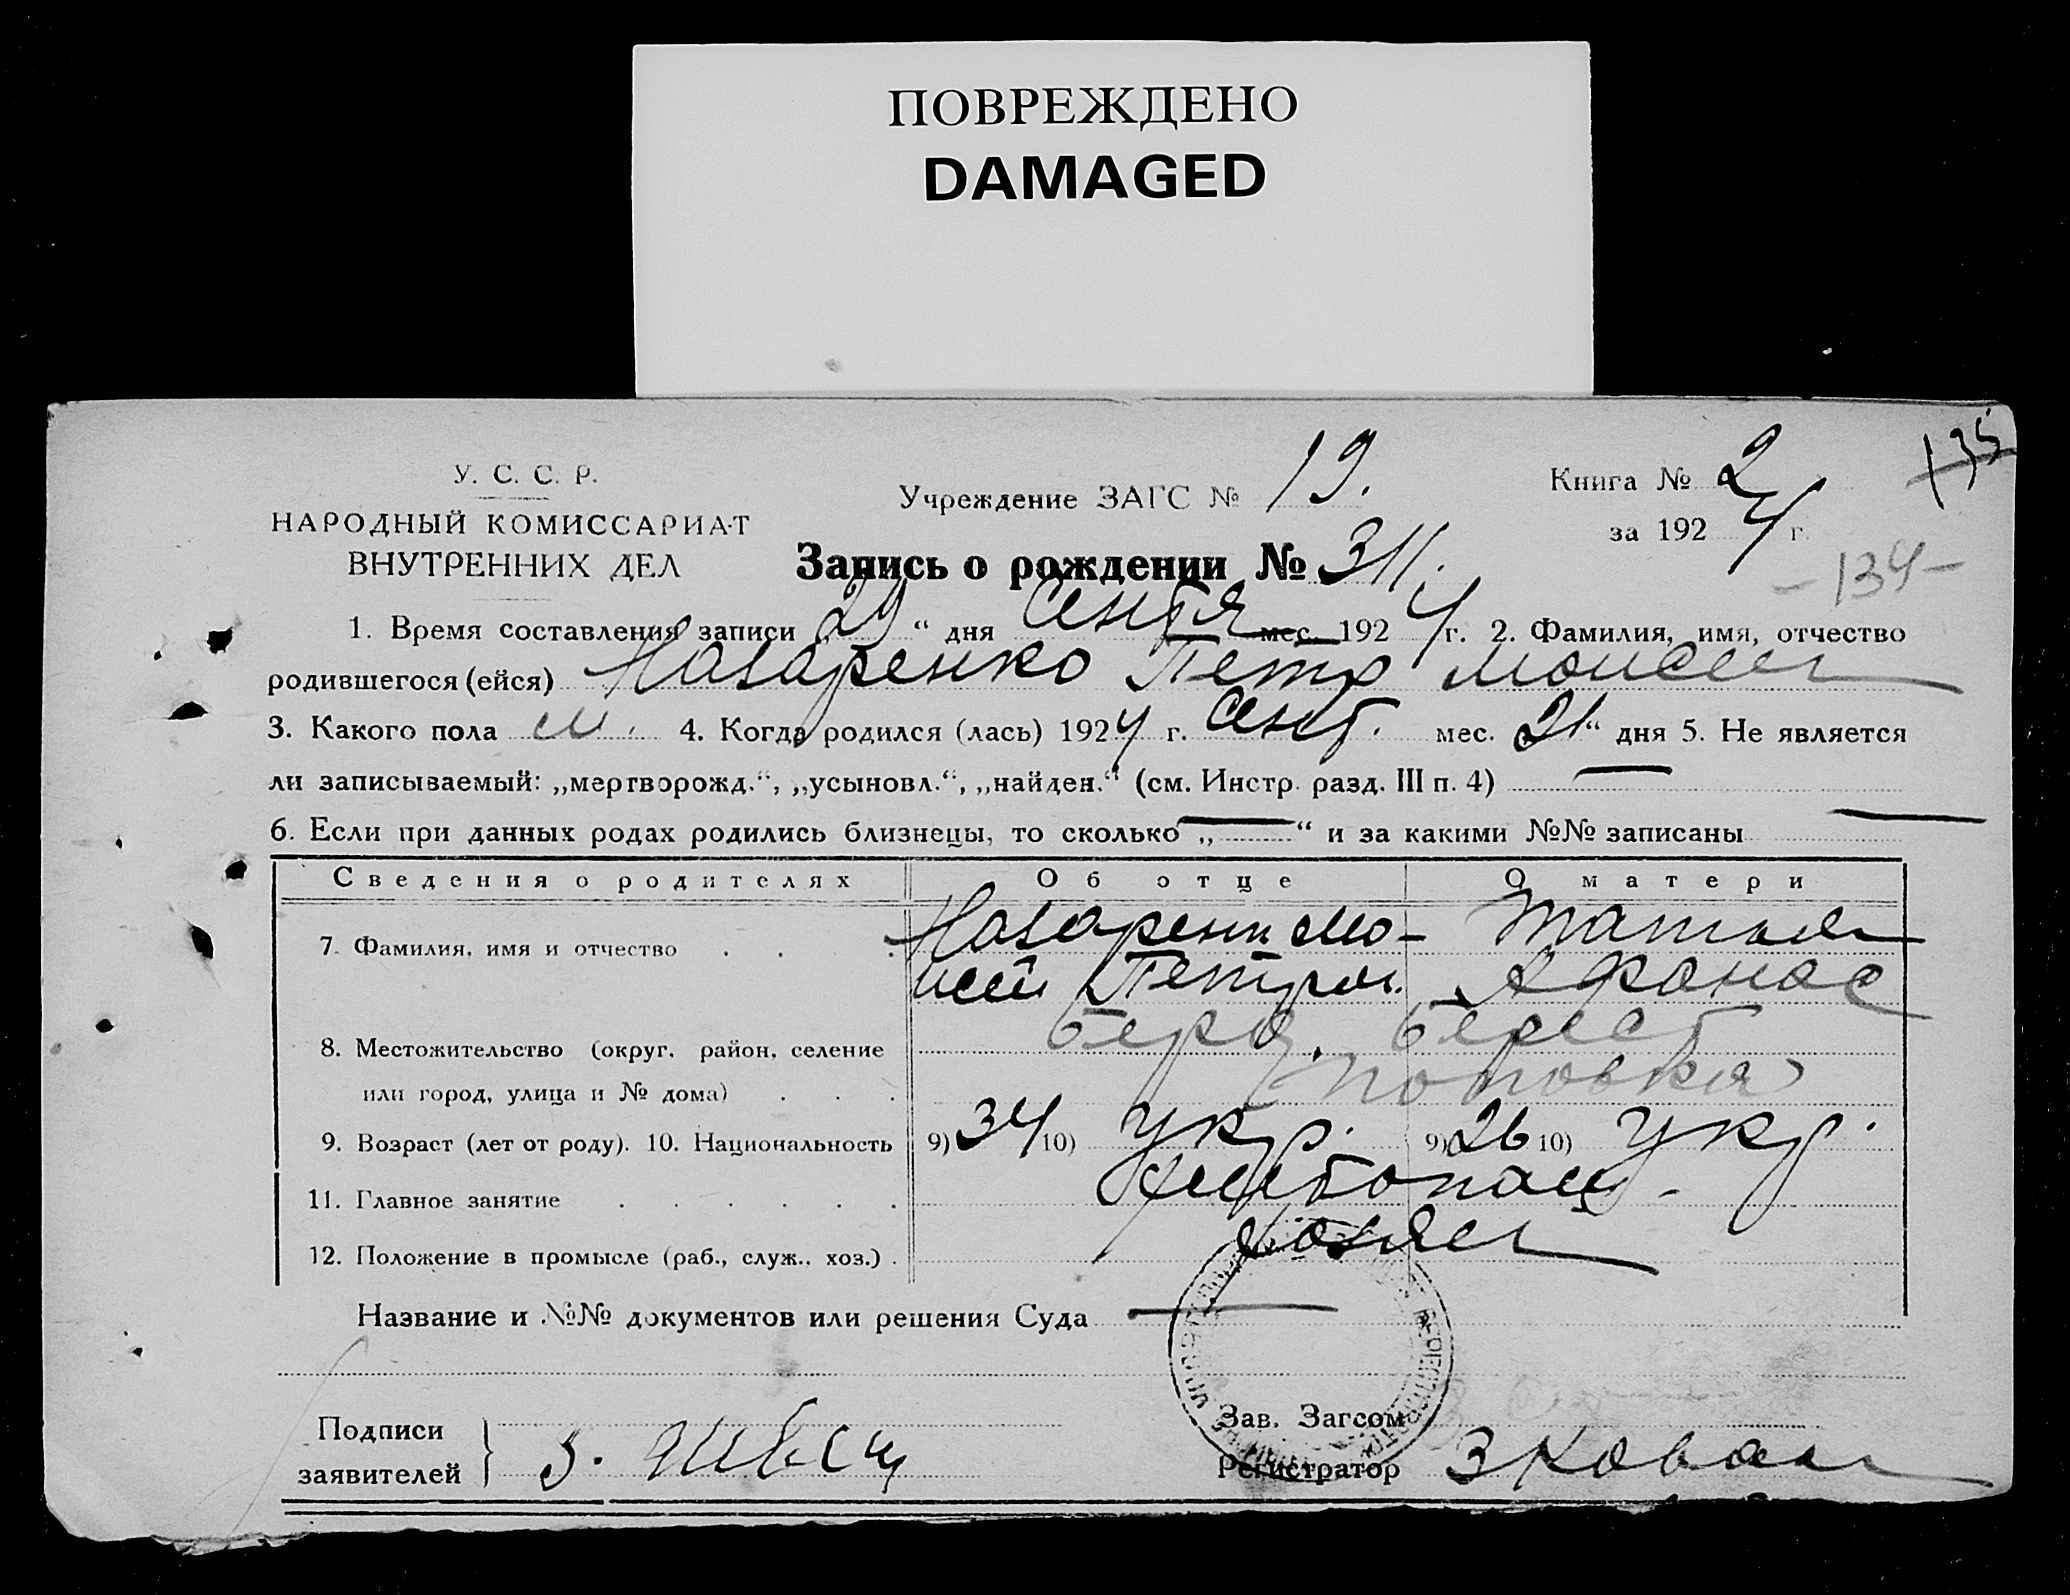 ПОВРЕЖДЕНО
DAMAGED
135
У. С. С. Р.
НАРОДНЫЙ КОМИССАРИАТ
ВНУТРЕННИХ ДЕЛ
Учреждение ЗАГС № 19.
Книга № 2
за 1924 г.
Запись о рождении № 311.
-134-
1. Время составления записи „29“ дня Сентя мес. 1924 г. 2. Фамилия, имя, отчество
родившегося (ейся) Назаренко Петр Моисеи
3. Какого пола м. 4. Когда родился (лась) 1924 г. Сент. мес. 21“ дня 5. Не является
ли записываемый: „мертворожд.“, „усыновл.“, „найден.“ (см. Инстр. разд. III п. 4) —
6. Если при данных родах родились близнецы, то сколько „—“ и за какими №№ записаны —
Сведения о родителях Об отце О матери
7. Фамилия, имя и отчество Назаренк Мо- Татьян
исей Петров. Афанас
8. Местожительство (округ, район, селение Берд. Берест
или город, улица и № дома) Поповка
9. Возраст (лет от роду). 10. Национальность 9) 34 10) укр. 9) 26 10) укр.
11. Главное занятие хлебопаш.
12. Положение в промысле (раб., служ., хоз.) хозяи
Название и №№ документов или решения Суда —
Подписи
заявителей
Зав. Загсом
Регистратор З Ковал